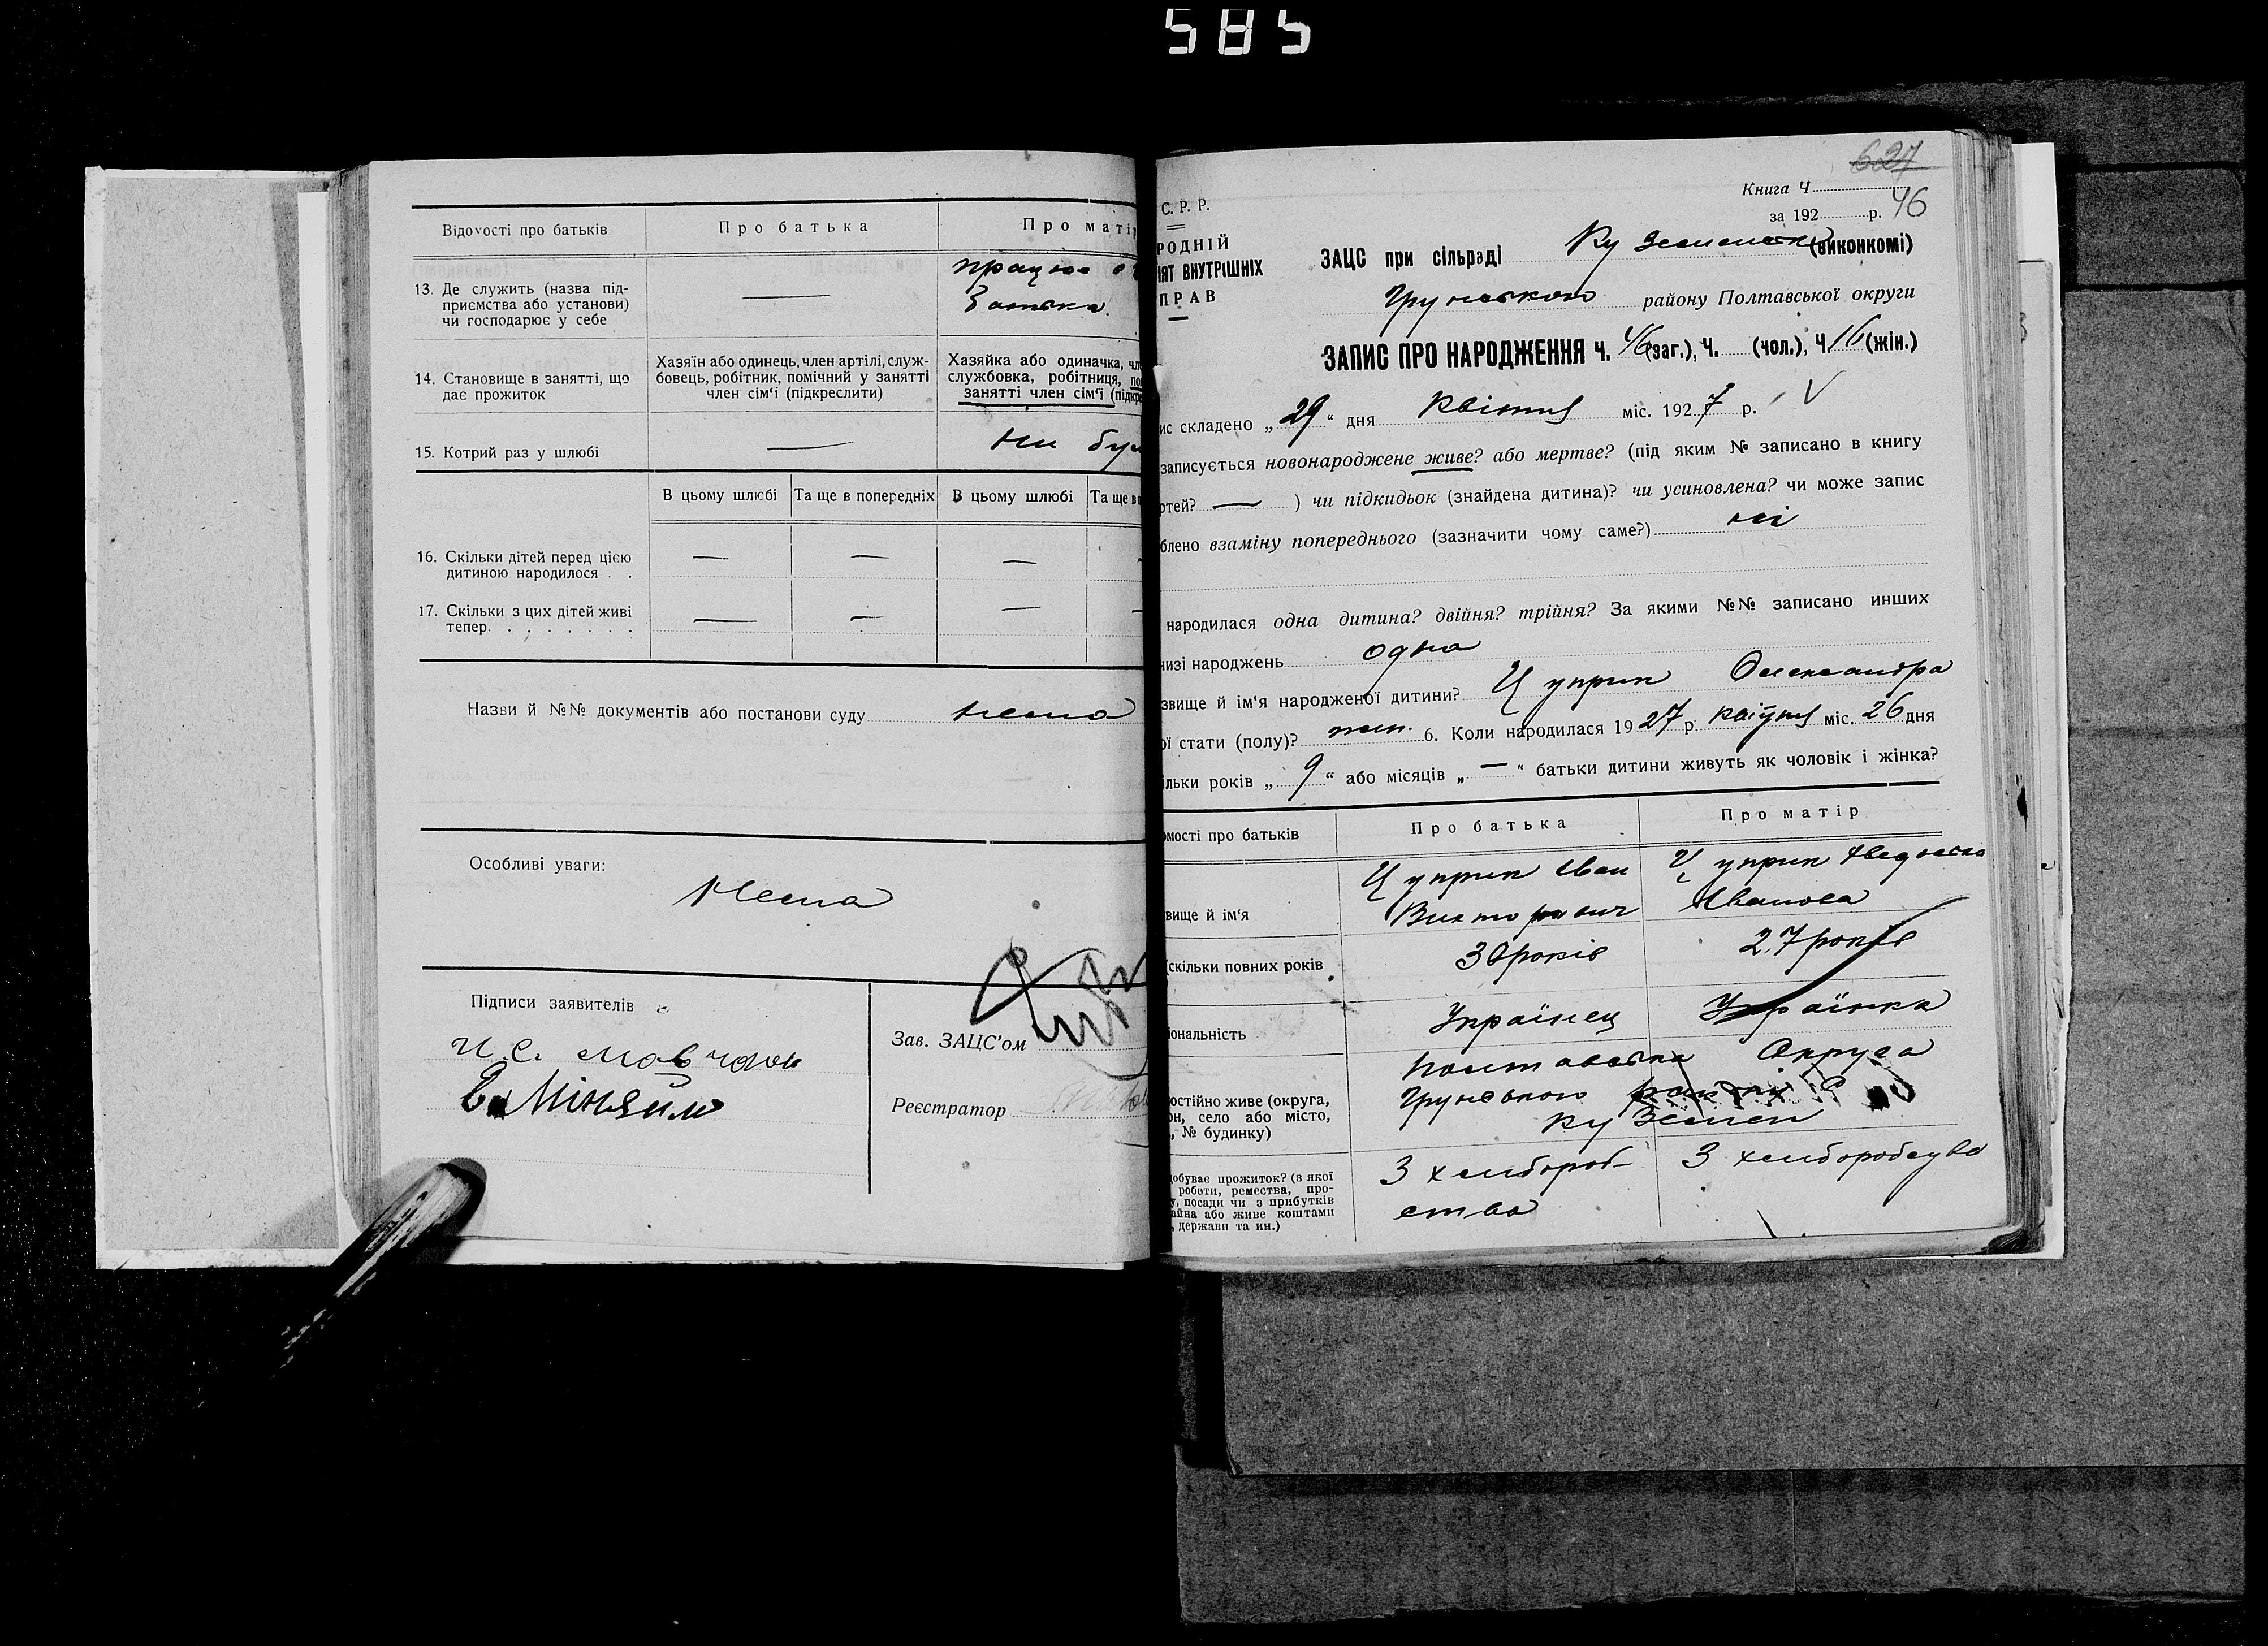 585
Відомості про батьків
Про батька
Про матір
13. Де служить (назва під-
приємства або установи)
чи господарює у себе
—
працює
батька.
14. Становище в занятті, що
дає прожиток
Хазяїн або одинець, член артілі, служ-
бовець, робітник, помічний у занятті
член сім'ї (підкреслити)
Хазяйка або одиначка, чл
службовка, робітниця, по
занятті член сім'ї (підкре
15. Котрий раз у шлюбі
—
Ни бу
В цьому шлюбі
Та ще в попередніх
В цьому шлюбі
Та ще в п
16. Скільки дітей перед цією
дитиною народилося . .
—
—
—
17. Скільки з цих дітей живі
тепер. . . . . . . .
—
—
—
Назви й №№ документів або постанови суду нема
Особливі уваги:
Нема
Підписи заявителів
И. С. Мовчан
Е. Міняйло
Зав. ЗАЦС'ом
Реєстратор
627
Книга Ч.
за 192 р. 46
С. Р. Р.
РОДНІЙ
ІЯТ ВНУТРІШНІХ
ПРАВ
ЗАЦС при сільраді Ку Земенськ (виконкомі)
Грунського району Полтавської округи
ЗАПИС ПРО НАРОДЖЕННЯ Ч. 46 (заг.), Ч. (чол.), Ч 16 (жін.)
ис складено „ 29 “ дня Квітня міс. 1927 р. V
записується новонароджене живе? або мертве? (під яким № записано в книгу
ртей? — ) чи підкидьок (знайдена дитина)? чи усиновлена? чи може запис
блено взаміну попереднього (зазначити чому саме?) ні
народилася одна дитина? двійня? трійня? За якими №№ записано инших
низі народжень одна
звище й ім'я народженої дитини? Цуприк Олександра
ої стати (полу)? жен. 6. Коли народилася 1927 р. Квітня міс. 26 дня
ільки років „ 9 “ або місяців „ — “ батьки дитини живуть як чоловік і жінка?
омості про батьків
Про батька
Про матір
звище й ім'я
Цуприк Иван
Викторович
Цуприк Хведоська
Иванова
(скільки повних років
30 років
27 років
іональність
Українец
Українка
остійно живе (округа,
он, село або місто,
, № будинку)
Полтавська Округа
Грунського
Ку Земен
добуває прожиток? (з якої
роботи, ремества, про-
у, посади чи з прибутків
айна або живе коштами
, держави та ин.)
З хлібороб-
ства
З хліборобсува